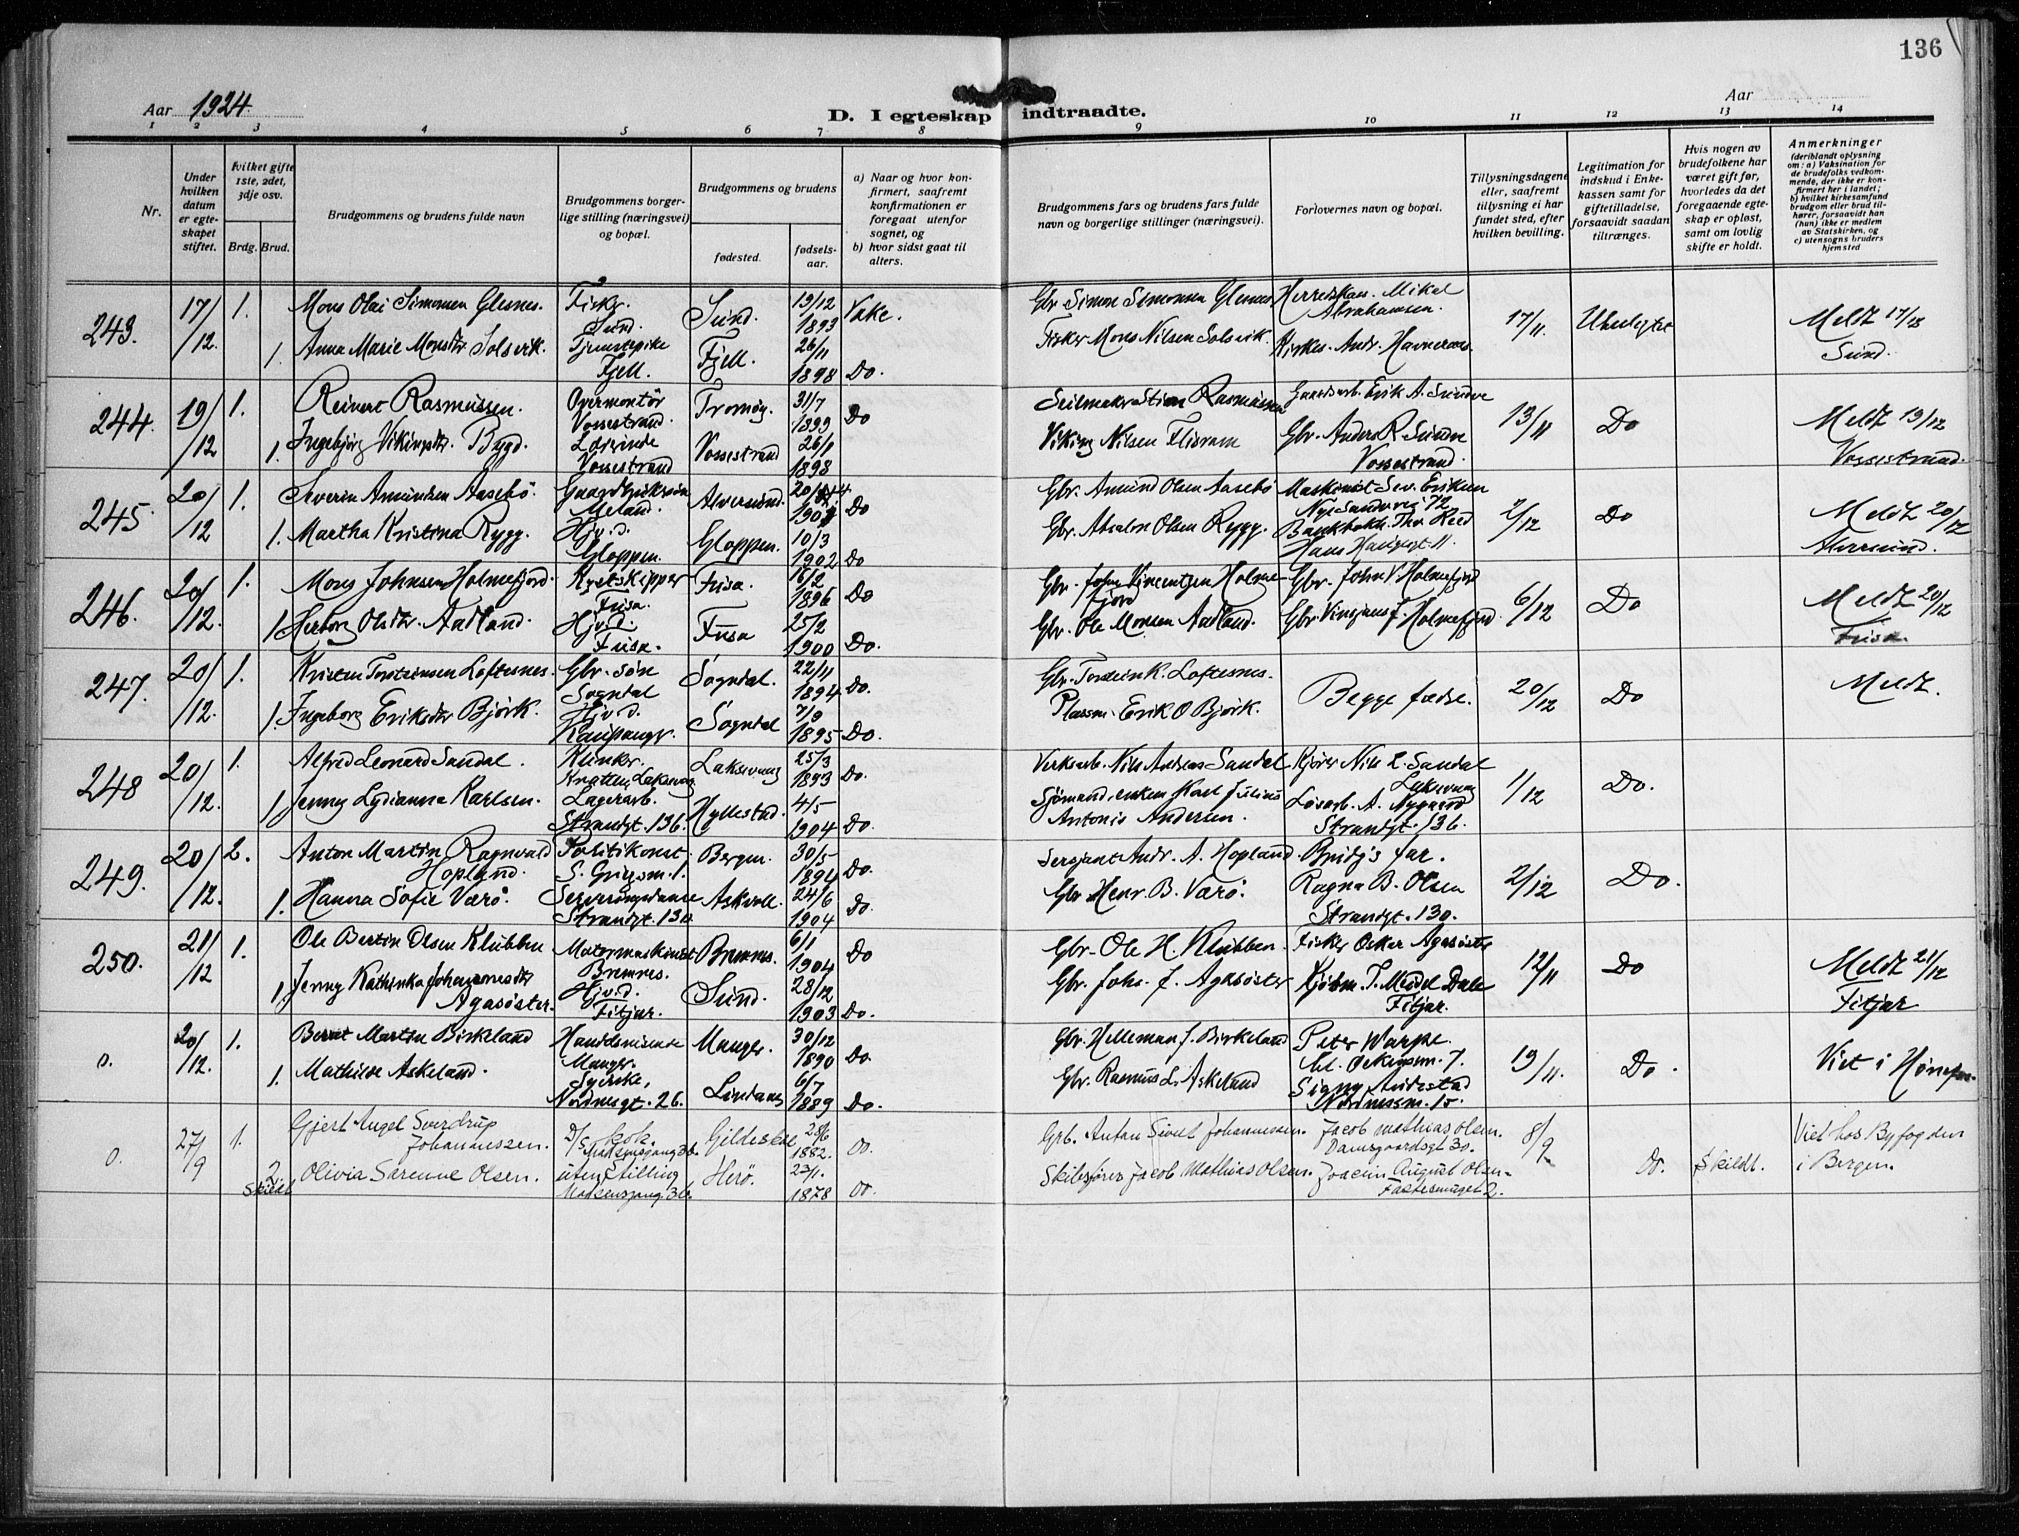 136
Aar 1924
Aar
D. I egteskap indtraadte.
1 2 3 4 5 6 7 8 9 10 11 12 13 14
Nr.
Under
hvilken
datum
er egte-
skapet
stiftet.
Hvilket gifte
1ste, 2det,
3dje osv.
Brdg. Brud.
Brudgommens og brudens fulde navn
Brudgommens borger-
lige stilling (næringsvei)
og bopæl.
Brudgommens og brudens
fødested.
fødsels-
aar.
a) Naar og hvor kon-
firmert, saafremt
konfirmationen er
foregaat utenfor
sognet, og
b) hvor sidst gaat til
alters.
Brudgommens fars og brudens fars fulde
navn og borgerlige stillinger (næringsvei).
Forlovernes navn og bopæl.
Tillysningsdagene
eller, saafremt
tillysning ei har
fundet sted, efter
hvilken bevilling.
Legitimation for
indskud i Enke-
kassen samt for
giftetilladelse,
forsaavidt saadan
tiltrænges.
Hvis nogen av
brudefolkene har
været gift før,
hvorledes da det
foregaaende egte-
skap er opløst,
samt om lovlig
skifte er holdt.
Anmerkninger
(deriblandt oplysning
om: a) Vaksination for
de brudefolks vedkom-
mende, der ikke er kon-
firmert her i landet;
b) hvilket kirkesamfund
brudgom eller brud til-
hører, forsaavidt han
(hun) ikke er medlem
av Statskirken, og
c) utensogns bruders
hjemsted
243. 17/12. 1. Mons Olai Simonsen Glesnes. Fisker. Sund. Sund. 19/12 1893 Vake.
Gbr Simon Simonsen Glesnes Mikal Abrahamsen. 17/11. Meldt 17/12 Sund.
1. Anna Marie Monsdtr Solsvik. Tjenestepike Fjell. Fjell. 26/11 1898 Do.
Fisker Mons Nilsen Solsvik. Kirkes. Andr.
244. 19/12 1. Reinert Rasmussen. Overmontör Vossestrand. Tromöy. 31/7 1899 Do
Seilmaker Stian Rasmussen Gaardsarb. Erik A. Sundve 13/11 Do Meldt 19/12 Vossestrand.
1. Ingebjörg Vikingsdtr. Bygd. Lærerinde Vossestrand Vossestrand 26/1 1898
Viking Nilsen Gbr. Anders R. Sundve Vossestrand.
245. 20/12 1. Severin Amundsen Aasebö. Meland. Alversund. Do
Gbr. Amund Olsen Aasebö Maskinist Sev. Eriksen Nye Sandsvei 72 2/12 Do Meldt 20/12 Alversund.
1. Martha Kristina Rygg. Hj.v.d. Gloppen. Gloppen. 10/3 1902 Do
Gbr. Absalon Olsen Rygg. Hans Haugesgt. 11.
246. 20/12. 1. Mons Johnsen Holmefjord. Kystskipper Fusa. Fusa. 16/2 1896 Do
Gbr. John Vincentsen Holmefjord Gbr. John V. Holmefjord 6/12 Do Meldt 20/12 Fusa.
1. Herborg Olsdtr. Aadland. Hj.v.d. Fusa. Fusa 25/2 1900 Do.
Gbr. Ole Monsen Aadland. Gbr. Vinsjans J. Holmefjord
247. 20/12. 1. Kristen Torsteinsen Loftesnes. Gbr.-sön Sogndal Sogndal. 22/11 1894 Do.
Gbr. Torstein K. Loftesnes. Begge fædre. 20/12 Do Meldt.
1. Ingeborg Eriksdtr Björk. Hj.v.d. Kaupanger. Sogndal 7/9 1895 Do.
Plassm. Erik O Björk.
248 20/12. 1. Alfred Leonard Sandal. Klinker. Laksevaag Laksevaag 25/3 1893 Do.
Verksarb. Nils Andreas Sandal Kjörer Nils L. Sandal Laksevaag 1/12 Do.
1 Jenny Lydianna Karlsen. Lagerarb. Strandgt. 136. Hyllestad. 4/5 1904 Do.
Sjömand, Karl Julius Antonio Andersen. Lösarb. A. Nygaard Strandgt. 136.
249. 20/12. 2. Anton Martin Ragnvald Hopland. Politikonst. Bergen. 30/5 1894 Do.
Sersjant Andr. A. Hopland. Brudg's far. 2/12 Do.
1. Hanna Sofie Værö. Serveringsdame Strandgt. 130. Askvoll. 24/6 1904 Do.
Gbr Henr. B. Værö. Ragna B. Olsen Strandgt. 130.
250. 21/12 1. Ole Bertin Olsen Klubben Motormaskinist Bremnes. Bremnes. 6/1 1904 Do
Gbr. Ole H. Klubben. Fisker Oskar Agasöster 12/11 Do Meldt 21/12 Fitjar
1 Jenny Kathinka Johannesdtr Agasöster. Hj.v.d. Fitjar. Sund. 28/12 1903 Do.
Gbr. Johs. J. Agasöster Kjöbm. T. Meidel Dale Fitjar.
0. 20/12. 1. Bernt Martin Birkeland Handelsreisende Manger. Manger. 30/12 1890 Do
Gbr. Helleman J. Birkeland Peter Warpe. 19/11. Do. Viet i
1. Mathilde Askeland. Syerske, Nordnesgt. 26. Lindaas 6/7 1889 Do.
Gbr. Rasmus L. Askeland Signy Nordnessm. 15.
0. 27/9 1. Gjert Angel Sverdrup Johannessen. D/S kok. Gildeskal 28/6 1882. Do.
Grb. Antan Sivert Johannessen. Jacob Mathias Olsen. Damsgaardsgt 30. 8/9. Do. Skildt. Viet hos Byfogden i Bergen.
2 Skildt Olivia Sørenne Olsen. uten stilling Herö. 23/1. 1878 Do.
Skibsfører Jacob Mathias Olsen. Joacim August Olsen.